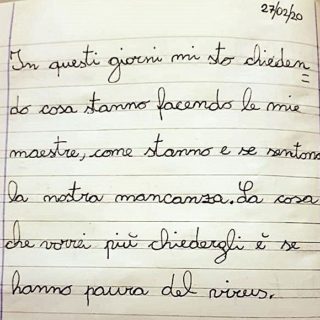 27/02/20
In questi giorni mi sto chieden=
do cosa stanno facendo le mie
maestre, come stanno e se sentono
la nostra mancanza. La cosa
che vorrei più chiedergli è se
hanno paura del virus.